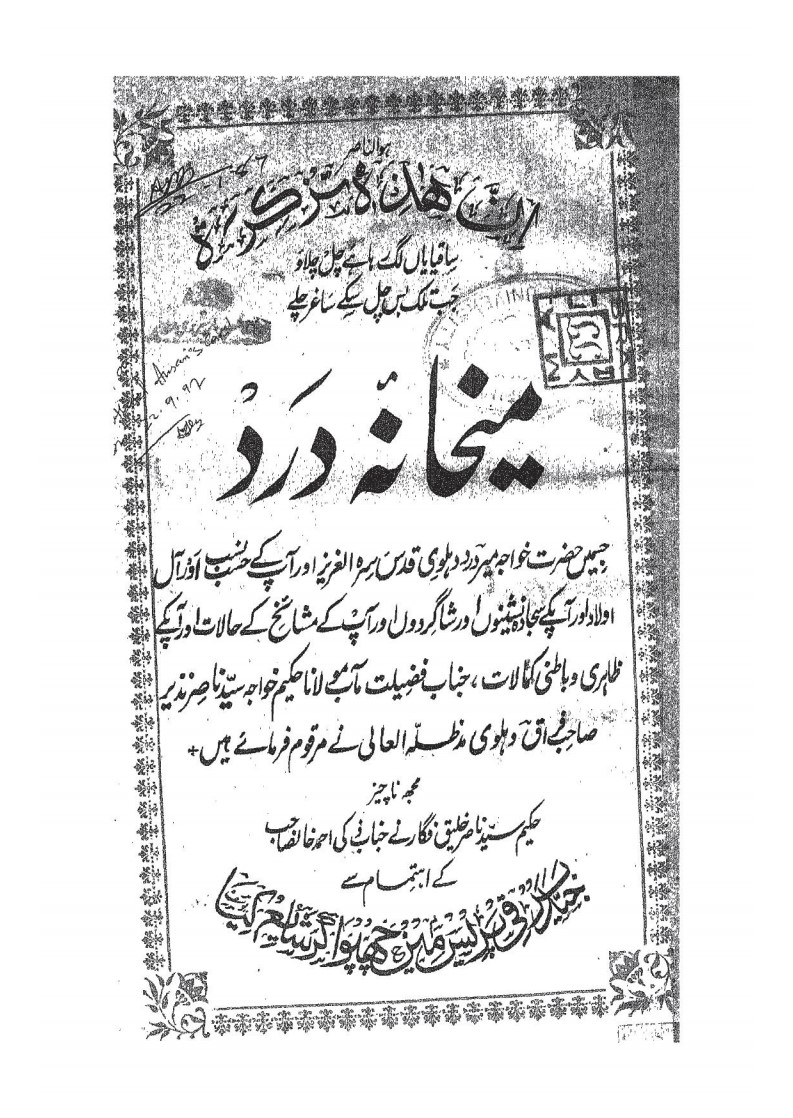 ہوالناصر
ان هذه تذكرة
ساقیا یاں لگ رہا ہے چل چلاؤ
جب تلک بس چل سکے ساغر چلے
میخانۂ درد
جسمیں حضرت خواجہ میر درد دہلوی قدس سرہ العزیز اور آپ کے حسب نسب اور آل
اولاد اور آپکے سجادہ نشینوں اور شاگردوں اور آپ کے مشائخ کے حالات اور آپکے
ظاہری و باطنی کمالات، جناب فضیلت مآب مولانا حکیم خواجہ سیّد ناصر نذیر
صاحب فراق دہلوی مدظلہ العالی نے مرقوم فرمائے ہیں
مجھ ناچیز
حکیم سیّد ناصر خلیق فگار نے جناب کی احمد خانصاحب
کے اہتمام سے
جید برقی پریس میں چھپوا کر شایع کیا
22-1-67
2.9.92